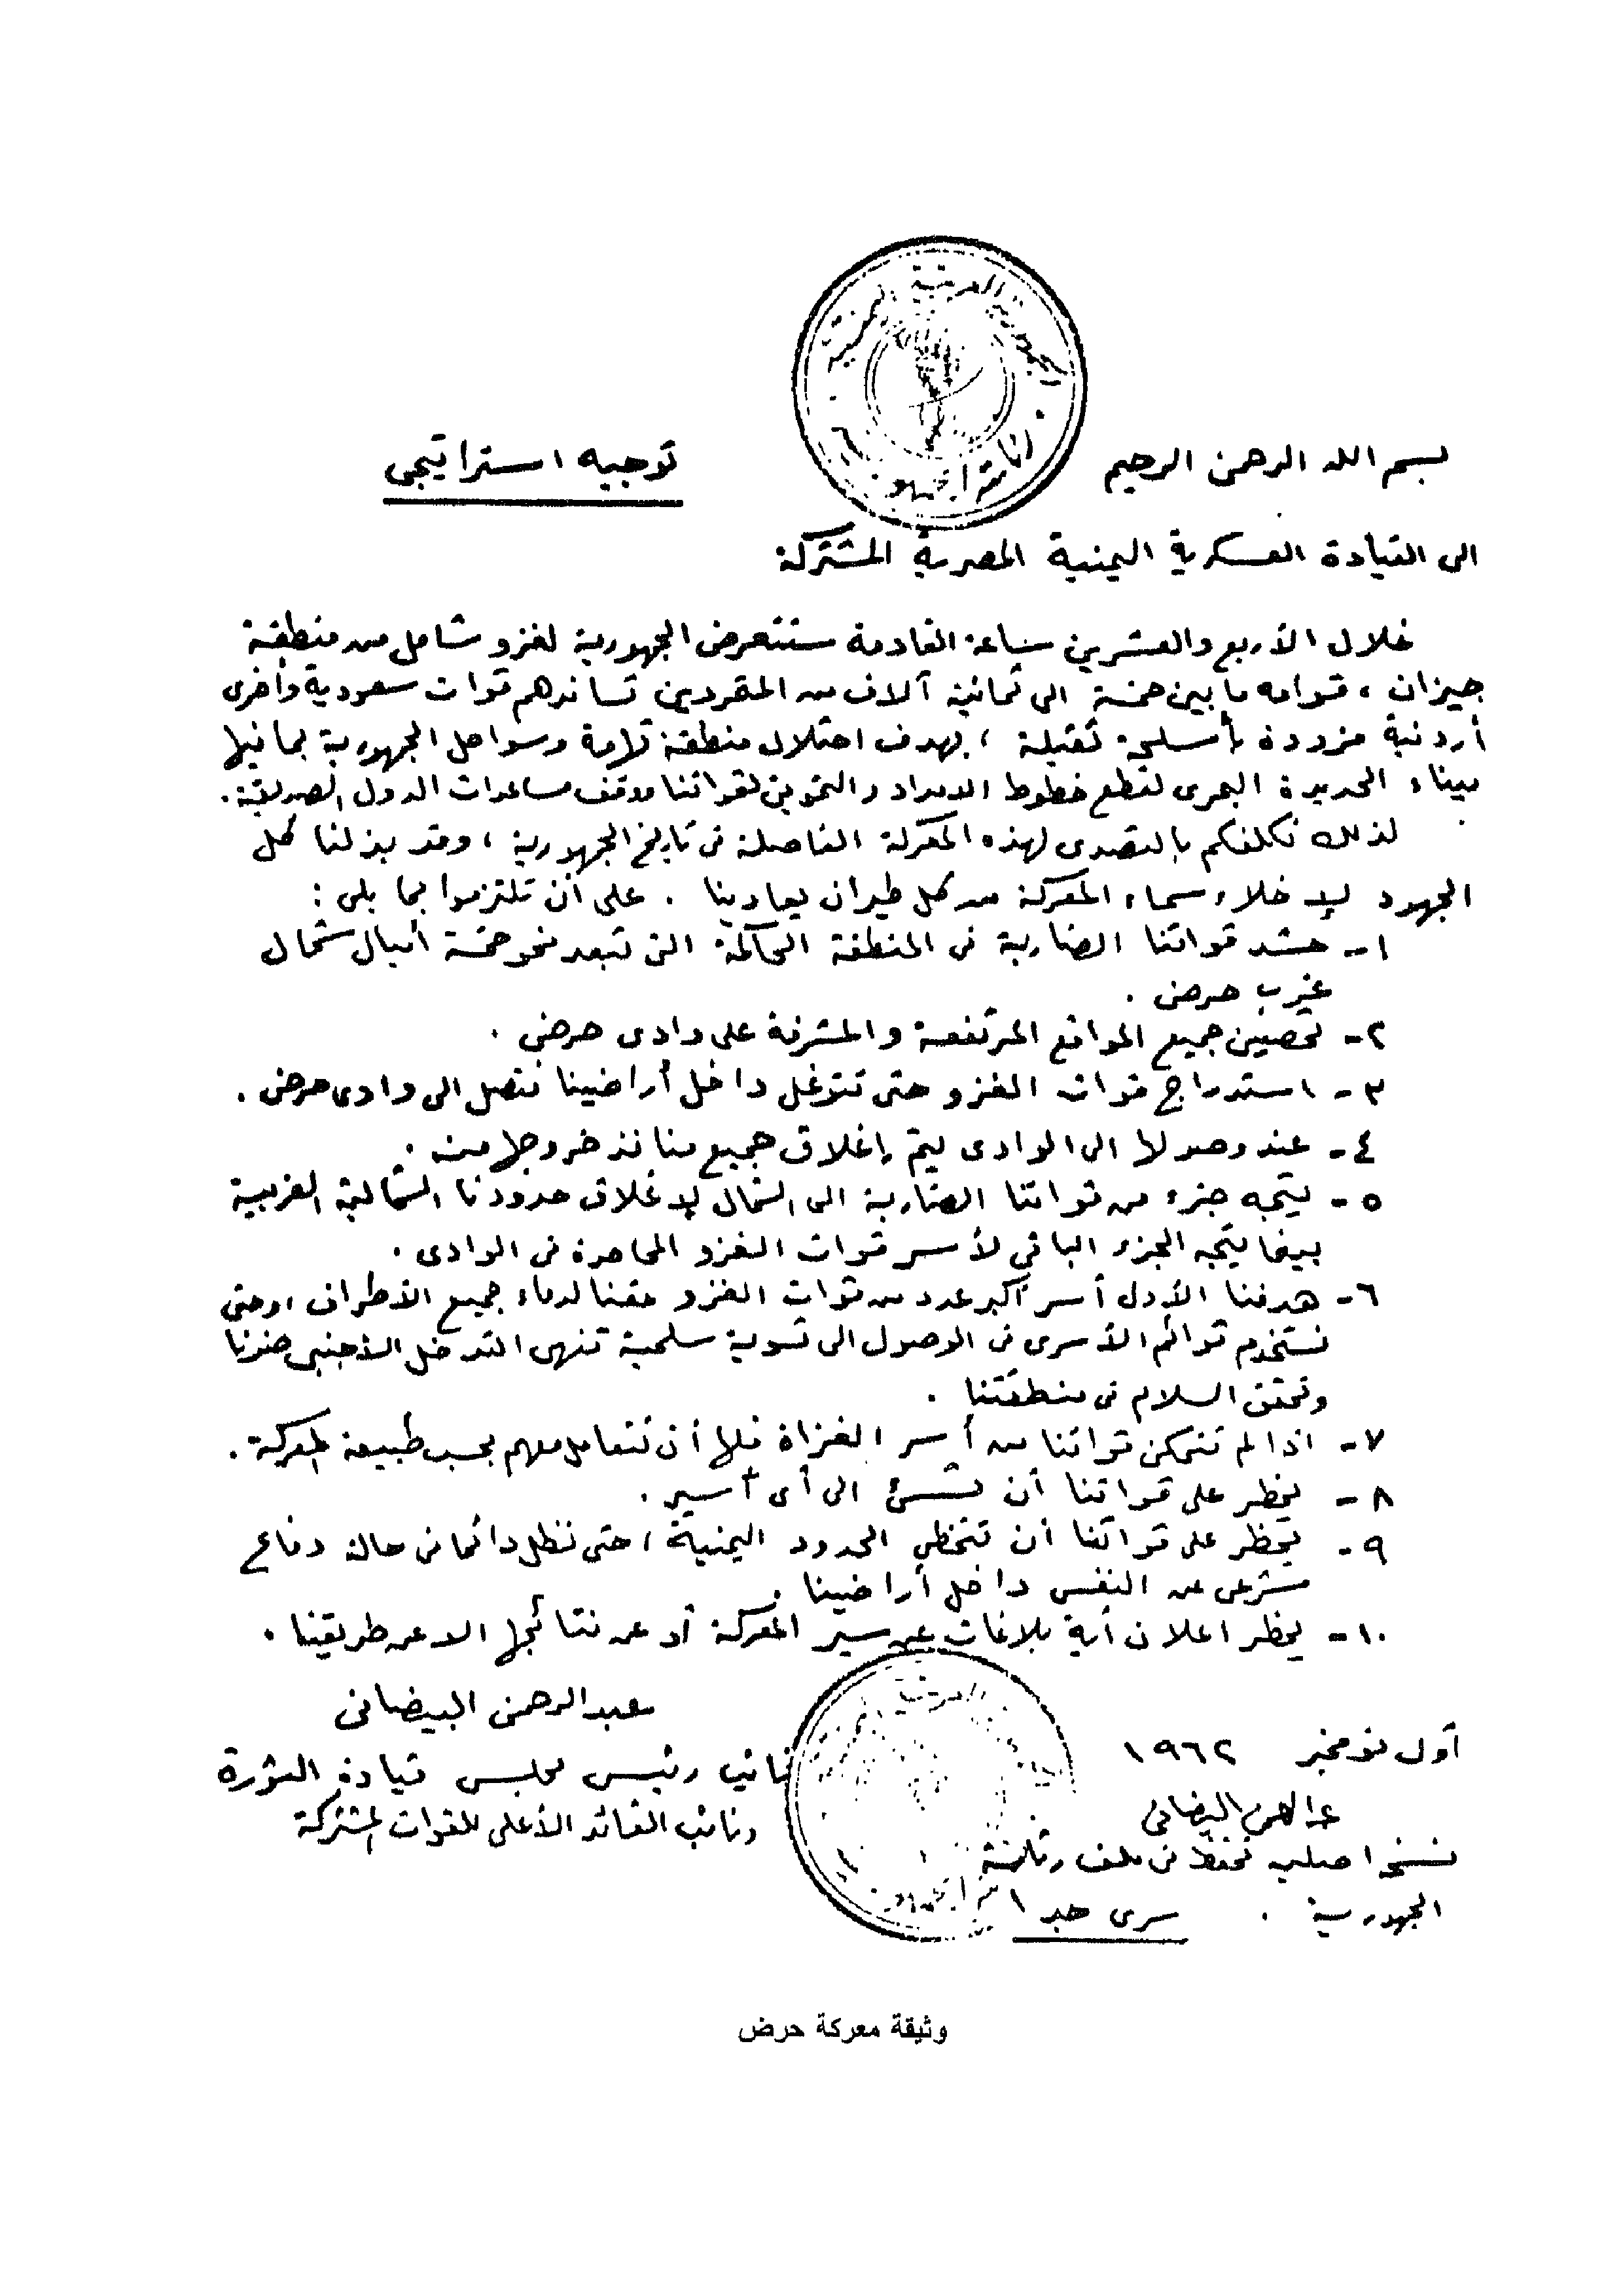 الجمهورية العربية اليمنية
رئاسة الجمهورية
بسم الله الرحمن الرحيم
توجيه استراتيجى
الى القيادة العسكرية اليمنية المصرية المشتركة
خلال الأربع والعشرين ساعة القادمة ستتعرض الجمهورية لغزو شامل من منطقة
جيزان ، قوامه ما بين خمسة الى ثمانية آلاف من المتمردين تساندهم قوات سعودية وأخرى
أردنية مزودة بأسلحة ثقيلة ، بهدف احتلال منطقة تهامة وسواحل الجمهورية بما فيها
ميناء الحديدة البحرى لقطع خطوط الامداد والتموين لقواتنا ووقف مساعدات الدول الصديقة .
لذلك نكلفكم بالتصدى لهذه المعركة الفاصلة فى تاريخ الجمهورية ، وقد بذلنا كل
الجهود لإخلاء سماء المعركة من كل طيران يعادينا . على أن تلتزموا بما يلى :
١ - حشد قواتنا الضاربة فى المنطقة الحاكمة التى تبعد نحو خمسة أميال شمال
غرب حرض .
٢ - تحصين جميع المواقع المرتفعة والمشرفة على وادى حرض .
٣ - استدراج قوات الغزو حتى تتوغل داخل أراضينا فتصل الى وادى حرض .
٤ - عند وصولها الى الوادى يتم إغلاق جميع منافذ خروجها منه .
٥ - يتجه جزء من قواتنا الضاربة الى الشمال لإغلاق حدودنا الشمالية الغربية
بينما يتجه الجزء الباقى لأسر قوات الغزو المحاصرة فى الوادى .
٦ - هدفنا الأول أسر أكبر عدد من قوات الغزو حقنا لدماء جميع الأطراف ، وحتى
نستخدم قوائم الأسرى فى الوصول الى تسوية سلمية تنهى التدخل الأجنبى ضدنا
وتحقق السلام فى منطقتنا .
٧ - اذا لم تتمكن قواتنا من أسر الغزاة فلها أن تتعامل معهم بحسب طبيعة المعركة .
٨ - يحظر على قواتنا أن تسئ الى أى أسير .
٩ - يحظر على قواتنا أن تتخطى الحدود اليمنية ، حتى نظل دائما فى حالة دفاع
شرعى عن النفس داخل أراضينا .
١٠ - يحظر اعلان أية بلاغات عن سير المعركة أو عن نتائجها الا عن طريقنا .
عبدالرحمن البيضانى
نائب رئيس مجلس قيادة الثورة
ونائب القائد الأعلى للقوات المشتركة
أول نوفمبر ١٩٦٢
عبدالرحمن البيضانى
نسخة اصلية تحفظ فى ملف رئاسة
الجمهورية .
سرى جدا
وثيقة معركة حرض